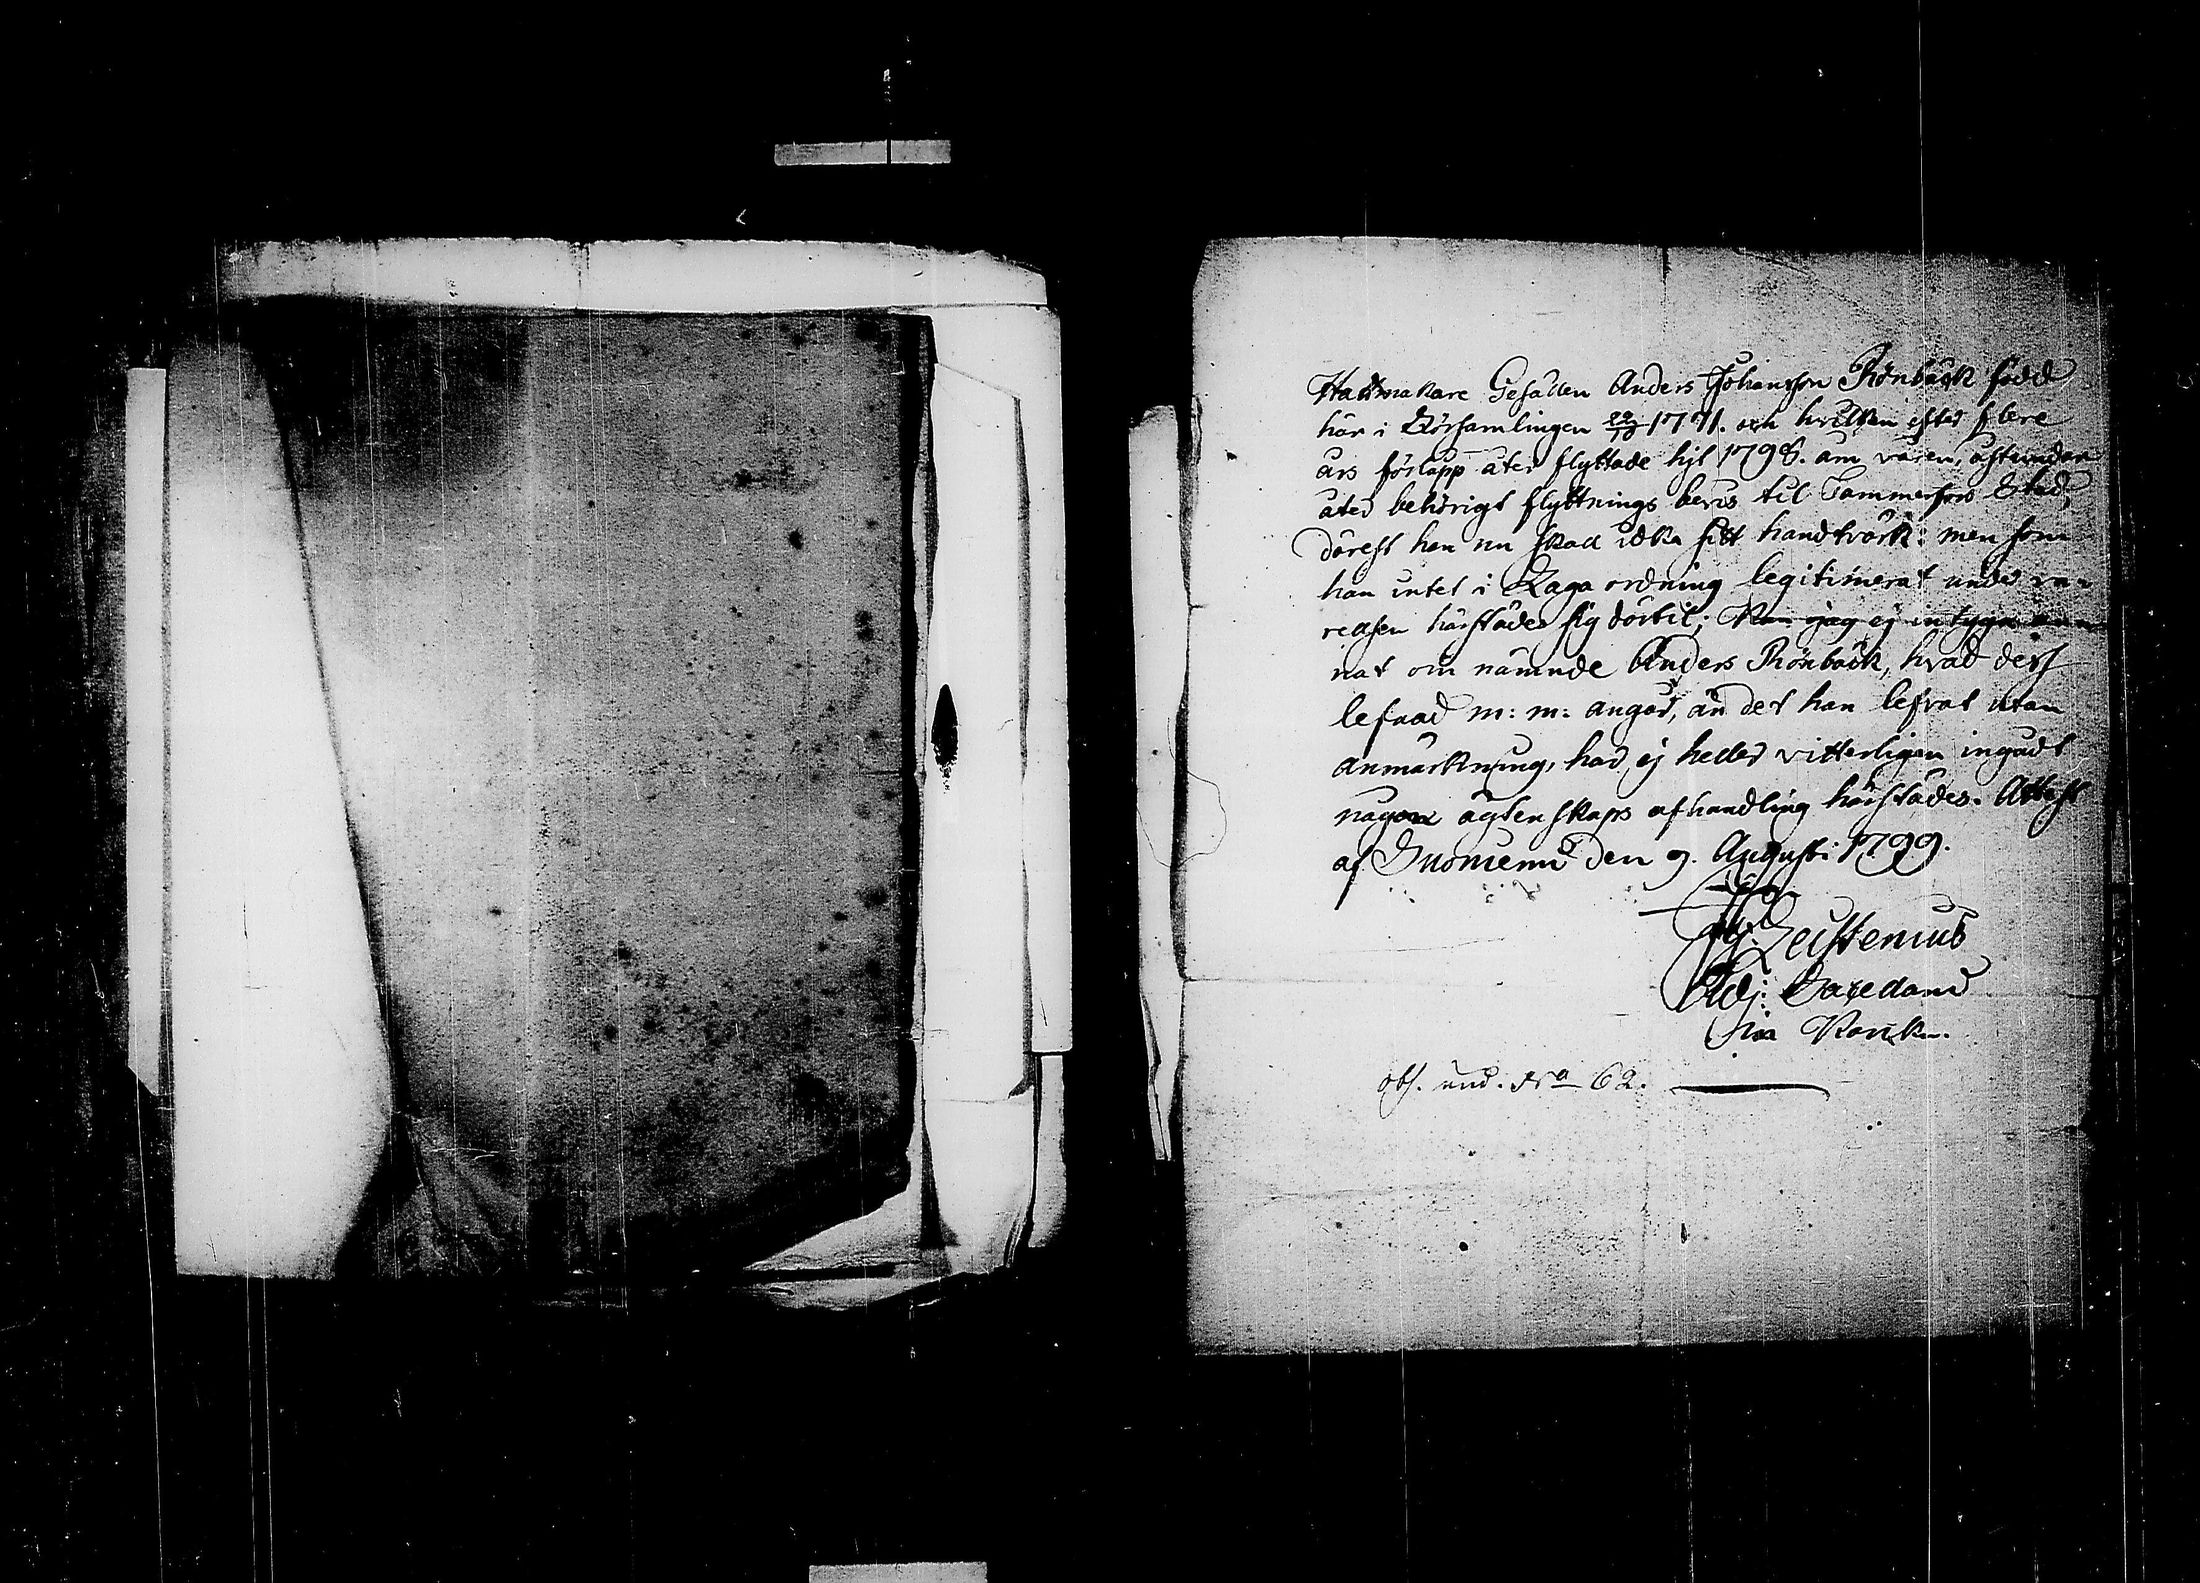 Hattmakare Gesällen Anders Johansson Rönbäck född
här i Församlingen 22/10 1771. och hvilken efter flere
års förlopp åter flyttade hit 1798. om våren, afsändan
åter behörigt flyttnings bevis til Tammerfors Stad,
därest han nu skall idka sitt handtvärk: men som
han intet i Laga ordning legitimerat under va-
relsen härstädes sig dertil; kan jag ej intyga an-
nat om nämnde Anders Rönbäck, hvad dess
lefnad m: m: angår, än det han lefvat utan
anmärkning, har ej heller vitterligen ingådt
någon ägtenskaps afhandling härstädes. Attest
af Suoniemi den 9. Augusti 1799.
Zeistenius
Adj:
obs. und. No 62.